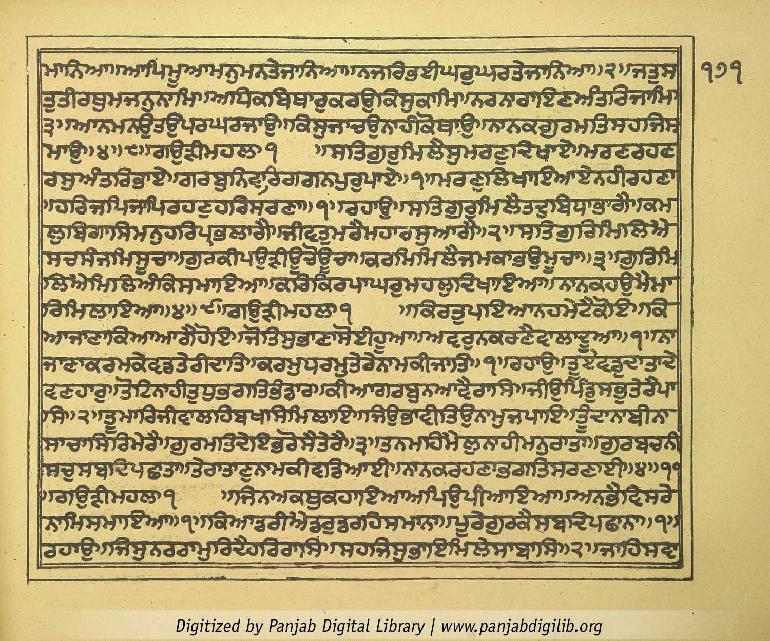 ਮਾਨਿਆ॥ਆਪਿਮੂਆਮਨੁਮਨਤੇਜਾਨਿਆ॥ਨਜਰਿਭਈਘਰੁਘਰਤੇਜਾਨਿਆ॥੨॥ਜਤੁਸ
ਤੁਤੀਰਥੁਮਜਨੁਨਾਮਿ॥ਅਧਿਕਬਿਥਾਰੁਕਰਉਕਿਸੁਕਾਮਿ॥ਨਰਨਾਰਾਇਣਅੰਤਰਿਜਾਮਿ
੩॥ਆਨਮਨਉਤਉਪਰਘਰਜਾਉ॥ਕਿਸੁਜਾਚਉਨਾਹੀਕੋਥਾਉ॥ਨਾਨਕਗੁਰਮਤਿਸਹਜਿਸ
ਮਾਉ॥੪॥੮॥ਗਉੜੀਮਹਲਾ ੧ ॥ਸਤਿਗੁਰੁਮਿਲੈਸੁਮਰਣੁਦਿਖਾਏ॥ਮਰਣਰਹਣ
ਰਸੁਅੰਤਰਿਭਾਏ॥ਗਰਬੁਨਿਵਾਰਿਗਗਨਪੁਰੁਪਾਏ॥੧॥ਮਰਣੁਲਿਖਾਇਆਏਨਹੀਰਹਣਾ
॥ਹਰਿਜਪਿਜਾਪਿਰਹਣੁਹਰਿਸਰਣਾ॥੧॥ਰਹਾਉ॥ਸਤਿਗੁਰੁਮਿਲੈਤਦੁਬਿਧਾਭਾਗੈ॥ਕਮ
ਲੁਬਿਗਾਸਿਮਨੁਹਰਿਪ੍ਰਭਲਾਗੈ॥ਜੀਵਤੁਮਰੈਮਹਾਰਸੁਆਗੈ॥੨॥ਸਤਿਗੁਰਿਮਿਲਿਐ
ਸਚਸੰਜਮਿਸੂਚਾ॥ਗੁਰਕੀਪਉੜੀਊਚੋਊਚਾ॥ਕਰਮਿਮਿਲੈਜਮਕਾਭਉਮੂਚਾ॥੩॥ਗੁਰਿਮਿ
ਲਿਐਮਿਲਿਅੰਕਿਸਮਾਇਆ॥ਕਰਿਕਿਰਪਾਘਰੁਮਹਲੁਦਿਖਾਇਆ॥ਨਾਨਕਹਉਮੈਮਾ
ਰਿਮਿਲਾਇਆ॥੪॥੯॥ਗਉੜੀਮਹਲਾ ੧ ॥ਕਿਰਤੁਪਇਆਨਹਮੇਟੈਕੋਇ॥ਕਿ
ਆਜਾਣਾਕਿਆਆਗੈਹੋਇ॥ਜੋਤਿਸੁਭਾਣਾਸੋਈਹੂਆ॥ਅਵਰੁਨਕਰਣੈਵਾਲਾਦੂਆ॥੧॥ਨਾ
ਜਾਣਾਕਰਮਕੇਵਡਤੇਰੀਦਾਤਿ॥ਕਰਮੁਧਰਮੁਤੇਰੇਨਾਮਕੀਜਾਤਿ॥੧॥ਰਹਾਉ॥ਤੂਏਵਡੁਦਾਤਾਦੇ
ਵਣਹਾਰੁ॥ਤੋਟਿਨਾਹੀਤੁਧੁਭਗਤਿਭੰਡਾਰ॥ਕੀਆਗਰਬੁਨਆਵੈਰਾਸਿ॥ਜੀਉਪਿੰਡੁਸਭੁਤੇਰੈਪਾ
ਸਿ॥੨॥ਤੂਮਾਰਿਜੀਵਾਲਹਿਬਖਸਿਮਿਲਾਇ॥ਜਿਉਭਾਵੀਤਿਉਨਾਮੁਜਪਾਇ॥ਤੂੰਦਾਨਾਬੀਨਾ
ਸਾਚਾਸਿਰਿਮੇਰੈ॥ਗੁਰਮਤਿਦੇਇਭਰੋਸੈਤੇਰੈ॥੩॥ਤਨਮਹਿਮੈਲੁਨਾਹੀਮਨੁਰਾਤਾ॥ਗੁਰਬਚਨੀ
ਸਚੁਸਬਦਿਪਛਾਤਾ॥ਤੇਰਾਤਾਣੁਨਾਮਕੀਵਡਿਆਈ॥ਨਾਨਕਰਹਣਾਭਗਤਿਸਰਣਾਈ॥੪॥੧੦
॥ਗਉੜੀਮਹਲਾ ੧ ॥ਜਿਨਿਅਕਥੁਕਹਾਇਆਅਪਿਉਪੀਆਇਆ॥ਅਨਭੈਵਿਸਰੇ
ਨਾਮਿਸਮਾਇਆ॥੧॥ਕਿਆਡਰੀਐਡਰੁਡਰਹਿਸਮਾਨਾ॥ਪੂਰੇਗੁਰਕੈਸਬਦਿਪਛਾਨਾ॥੧॥
ਰਹਾਉ॥ਜਿਸੁਨਰਰਾਮੁਰਿਦੈਹਰਿਰਾਸਿ॥ਸਹਜਿਸੁਭਾਇਮਿਲੇਸਾਬਾਸਿ॥੨॥ਜਾਹਿਸਵਾ
੧੭੧
Digitized by Panjab Digital Library | www.panjabdigilib.org